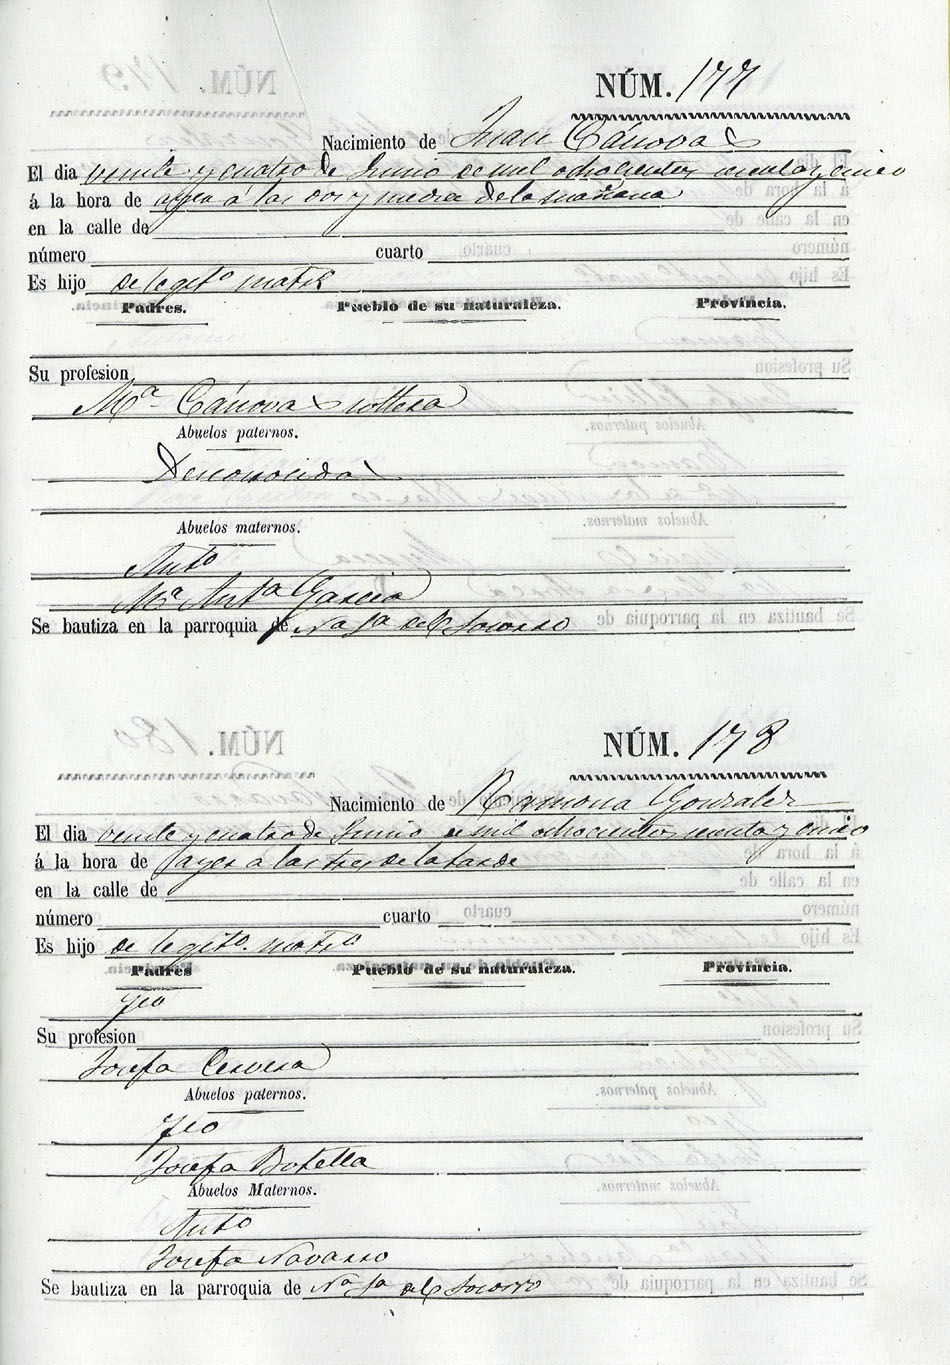 NÚM. 177
Nacimiento de Juan Cánovas
El dia veinte y cuatro de Junio de mil ochocientos y cinco
á la hora de ayer á las dos y media de la mañana
en la calle de
número cuarto
Es hijo de legit.º matr.º
Padres. Pueblo de su naturaleza. Provincia.
Su profesion
Mª Cánovas soltera
Abuelos paternos.
Desconocidos
Abuelos maternos.
Antº
Mª Antª Garcia
Se bautiza en la parroquia de Nª Sª del Socorro
NÚM. 178
Nacimiento de Ramona Gonzalez
El dia veinte y cuatro de Junio de mil ochocientos y cinco
á la hora de ayer á las tres de la tarde
en la calle de
número cuarto
Es hijo de legitº. matrº
Padres Pueblo de su naturaleza. Provincia.
Su profesion
Josefa Cervera
Abuelos paternos.
Josefa Botella
Abuelos Maternos.
Antº
Josefa Navarro
Se bautiza en la parroquia de Nª Sª del Socorro